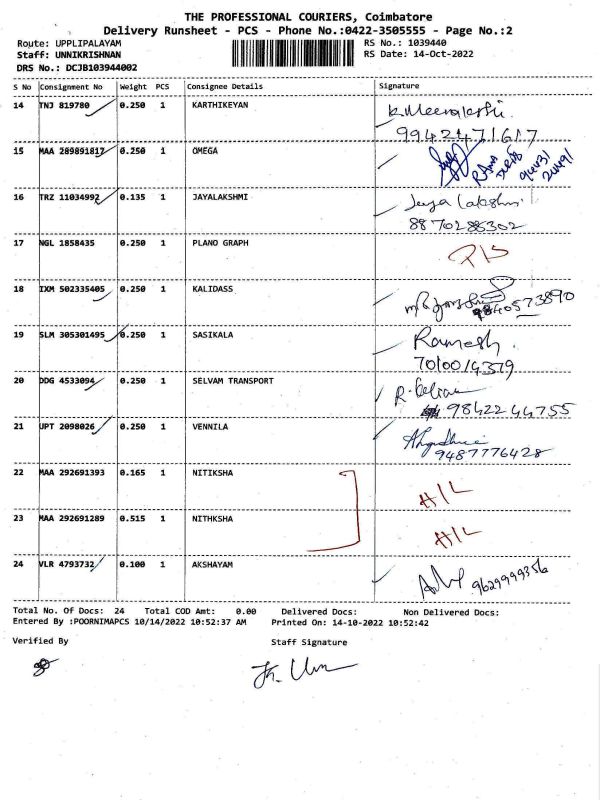 THE PROFESSIONAL COURIERS, Coimbatore
Delivery Runsheet - PCS - Phone No.:0422-3505555 - Page No.:2
Route: UPPLIPALAYAM RS No.: 1039440
Staff: UNNIKRISHNAN RS Date: 14-Oct-2022
DRS No.: DCJB103944002
S No Consignment No Weight PCS Consignee Details Signature
14 TNJ 819780 0.250 1 KARTHIKEYAN K. Meenakshi
9942471617
15 MAA 289891817 0.250 1 OMEGA
16 TRZ 11034992 0.135 1 JAYALAKSHMI Jeya Lakshmi
8870285302
17 NGL 1858435 0.250 1 PLANO GRAPH
18 IXM 502335405 0.250 1 KALIDASS 9840573890
19 SLM 305301495 0.250 1 SASIKALA Ramesh
7010014379
20 DDG 4533094 0.250 1 SELVAM TRANSPORT
9842244755
21 UPT 2098026 0.250 1 VENNILA
9487776428
22 MAA 292691393 0.165 1 NITIKSHA H/L
23 MAA 292691289 0.515 1 NITHKSHA H/L
24 VLR 4793732 0.100 1 AKSHAYAM 9629999356
Total No. Of Docs: 24 Total COD Amt: 0.00 Delivered Docs: Non Delivered Docs:
Entered By :POORNIMAPCS 10/14/2022 10:52:37 AM Printed On: 14-10-2022 10:52:42
Verified By Staff Signature